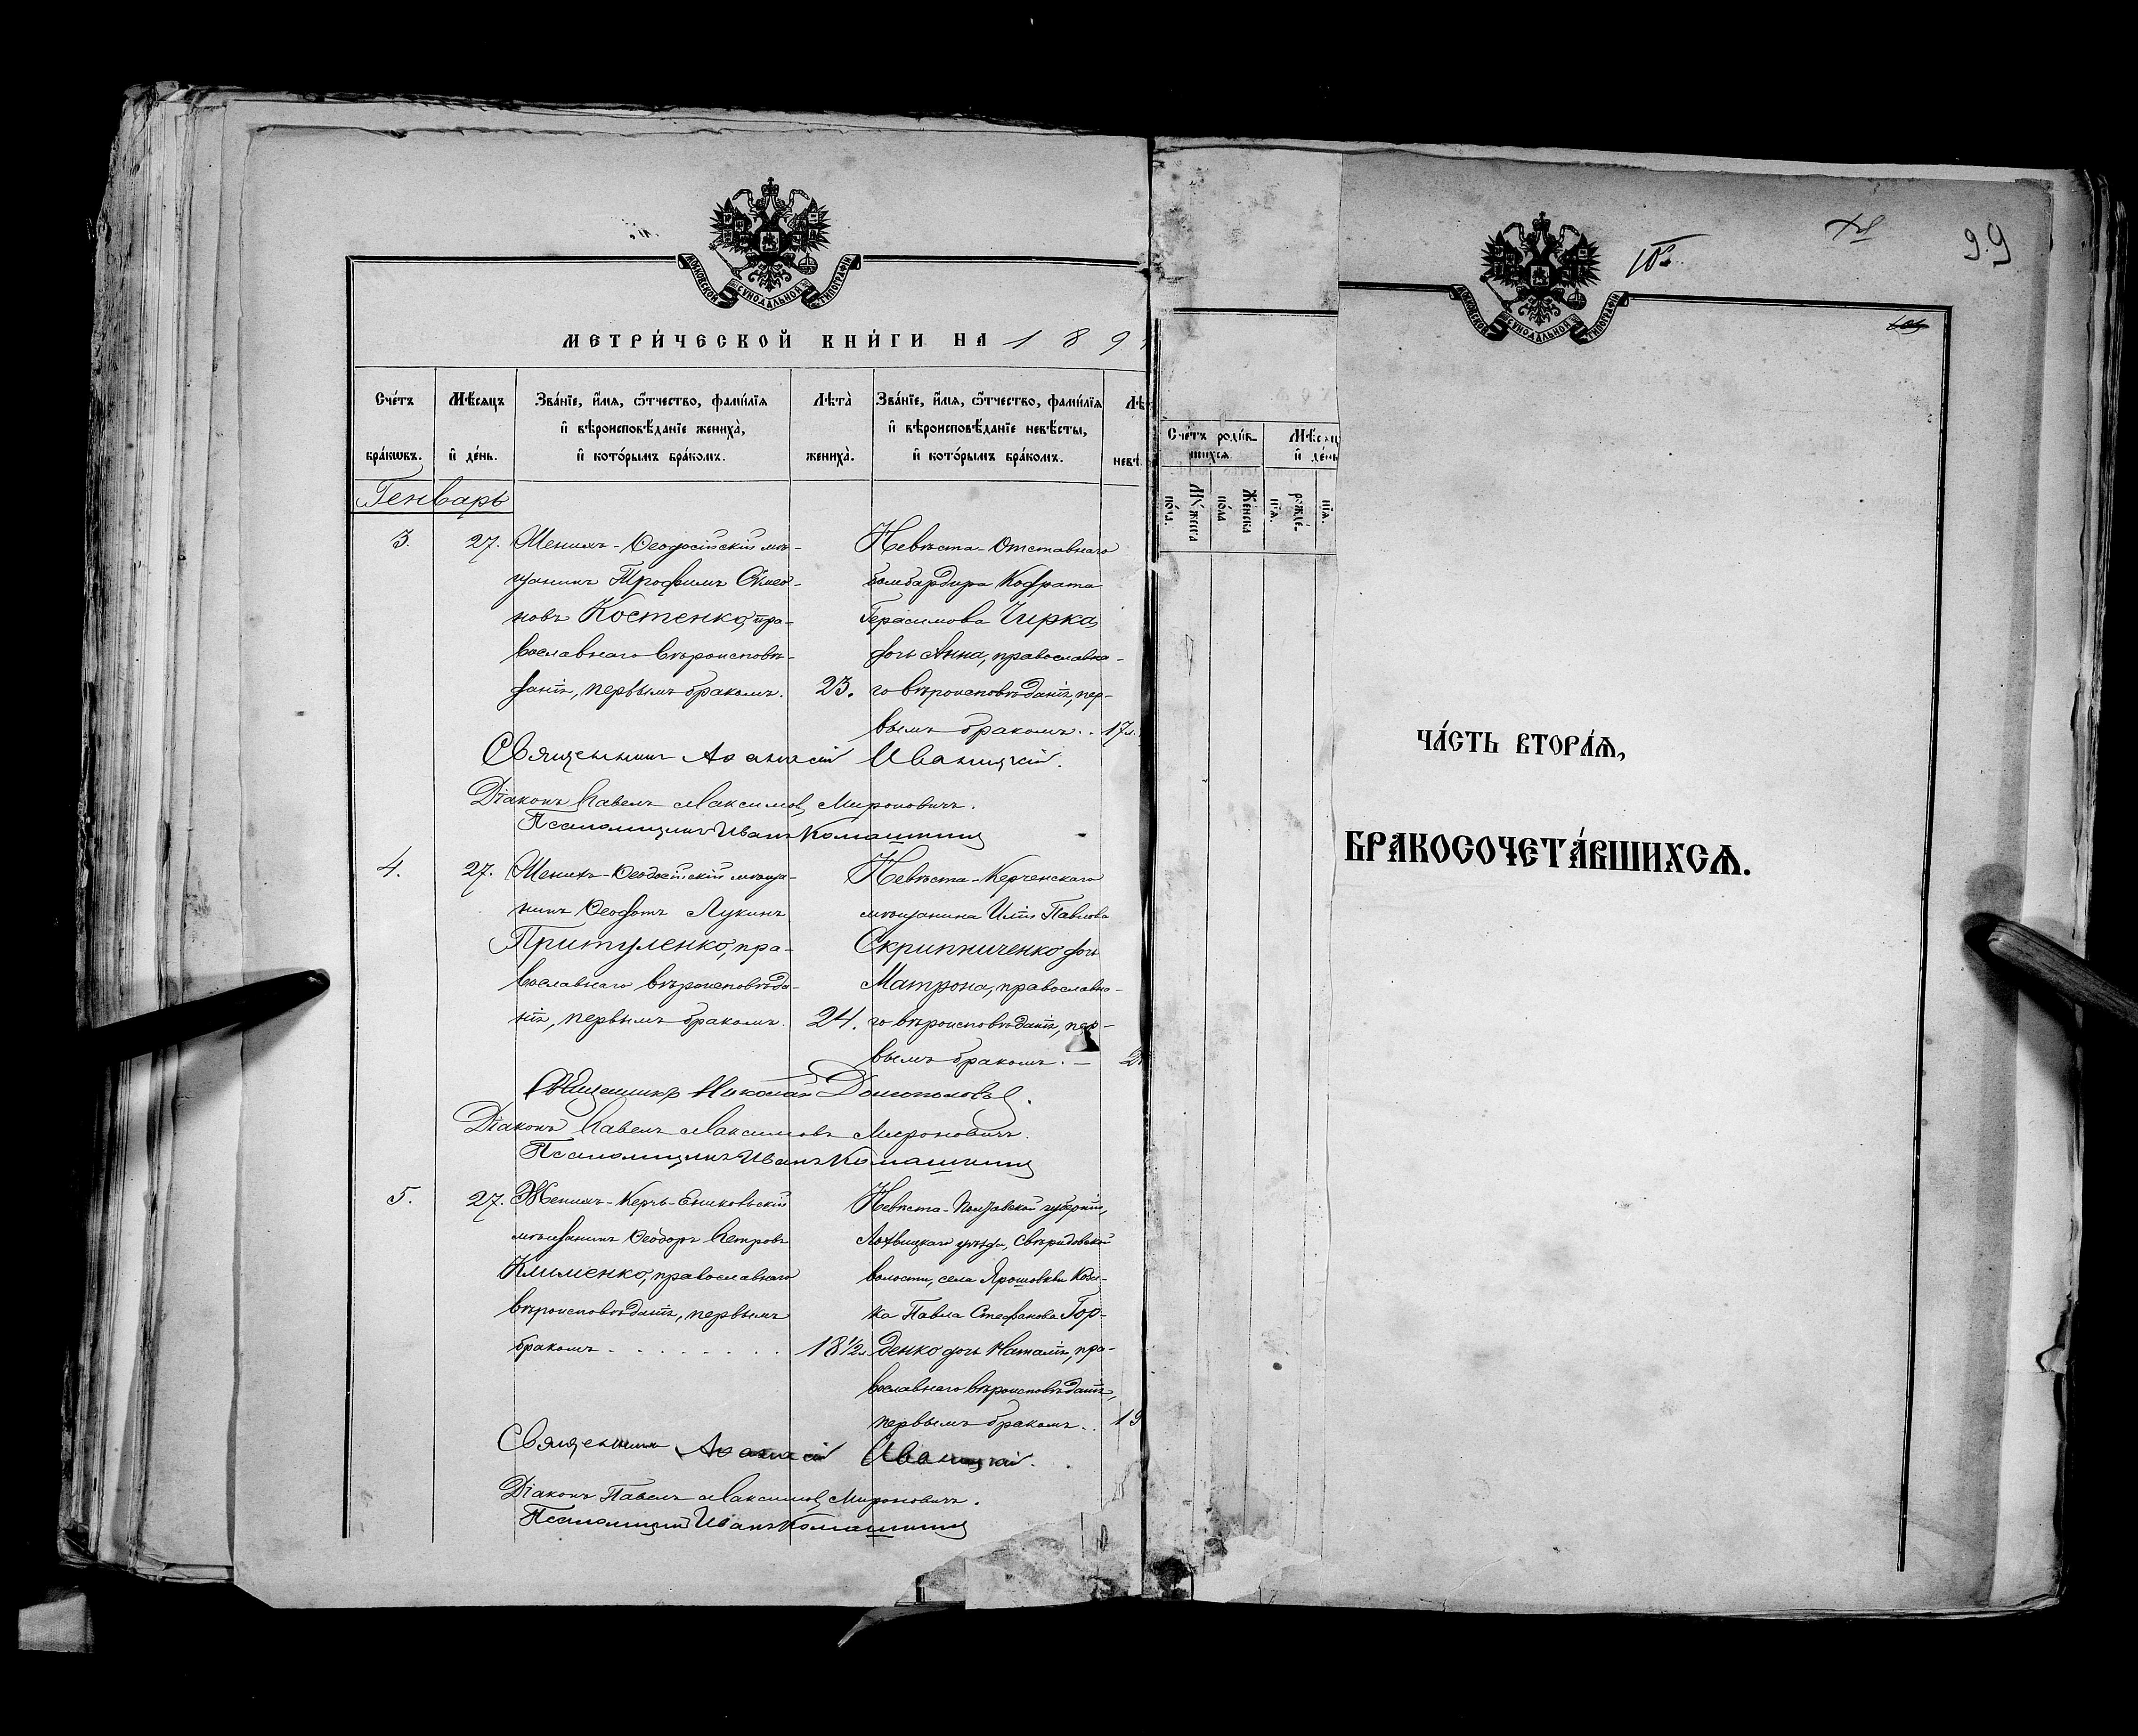 МОСКОВСКОЙ СУНОДАЛЬНОЙ ТИПОГРАФІИ
МЕТРИ́ЧЕСКОЙ КНИ́ГИ НА 1 8 9
Сче́тъ бра́кωвъ.
Мѣ́сяцъ и҆ де́нь.
Зва́нїе, и҆́мя, ѻ҆́тчество, фами́лїя
и҆ вѣроисповѣ́данїе жениха̀,
и҆ кото́рымъ бра́комъ.
Лѣта̀ жениха̀.
Зва́нїе, и҆́мя, ѻ҆́тчество, фами́лїя
и҆ вѣроисповѣ́данїе невѣ́сты,
и҆ кото́рымъ бра́комъ.
Лѣ
невѣ
Генварь
3.
27.
Женихъ-Ѳеодосійскій мѣ-
щанинъ Трофимъ Симео-
новъ Костенко, пра-
вославнаго вѣроисповѣ-
данія, первымъ бракомъ.
23.
Невѣста-Отставнаго
бомбардира Кодрата
Герасимова Чирка
дочь Анна, православна-
го вѣроисповѣданія, пер-
вымъ бракомъ..
17л.
Священникъ Аѳанасій Иваницкій.
Діаконъ Павелъ Максимовъ Мироновичъ.
Псаломщикъ Иванъ
4.
27.
Женихъ-Ѳеодосійскій мѣща-
нинъ Ѳеодотъ Лукинъ
Притуленко, пра-
вославнаго вѣроисповѣда-
нія, первымъ бракомъ.
24.
Невѣста-Керченскаго
мѣщанина Иліи Павлова
Скрипниченко дочь
Матрона, православна-
го вѣроисповѣданія, пер-
вымъ бракомъ.-
Священникъ Николай
Діаконъ Павелъ Максимовъ Мироновичъ.
Псаломщикъ Иванъ
5.
27.
Женихъ-Керчь-Ениковьскій
мѣщанинъ Ѳеодоръ Петровъ
Клименко, православнаго
вѣроисповѣданія, первымъ
бракомъ . . . . . . . .
18½л.
Невѣста-Полтавской губерніи,
Лохвицкаго уѣзда, Свѣридовской
волости, села Ярошовки Коза-
ка Павла Стефанова Гор-
денко дочь Наталія, пра-
вославнаго вѣроисповѣданія,
первымъ бракомъ..
19
Священникъ Аѳанасій Иваницкій.
Діаконъ Павелъ Максимовъ Мироновичъ.
Псаломщикъ Иванъ
Сче́тъ роди́в-
шихся
Мѣ́сяц
и҆ де́нь
Му́жеска по́ла.
Же́нска по́ла
рожде́- нїя.
нїя.
МОСКОВСКОЙ СУНОДАЛЬНОЙ ТИПОГРАФІИ
99
ЧА́СТЬ ВТОРА́Ѧ,
БРАКОСОЧЕТА́ВШИХСѦ.